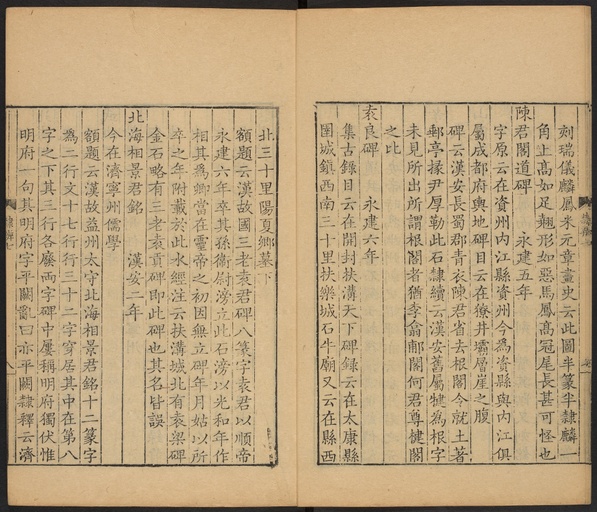 刻瑞儀麟鳳米元章畫史云此圖半篆半隸麟一
角止高如足翹形如惡馬鳳高冠尾長甚可怪也
陳君閣道碑 永建五年
字原云在資州内江縣資州今為資縣與内江俱
屬成都府輿地碑目云在獠井壩層崖之腹
碑云漢安長蜀郡青衣陳君省去根閣令就土著
郵亭掾尹厚勒此石隸續云漢安舊屬犍為根字
未見所出所謂根閣者猶李翕郙閣何君尊楗閣
之比
袁良碑 永建六年
集古錄目云在開封扶溝天下碑錄云在太康縣
圉城鎮西南三十里扶樂城石牛廟又云在縣西
北三十里陽夏鄉墓下
額題云漢故國三老袁君碑八篆字袁君以順帝
永建六年卒其孫衛尉滂立此石滂以光和年作
相其為卿當在靈帝之初因無立碑年月姑以所
卒之年附載於此水經注云扶溝城北有袁梁碑
金石略有三老袁貢碑即此碑也其名皆誤
北海相景君銘 漢安二年
今在濟寧州儒學
額題云漢故益州太守北海相景君銘十二篆字
為二行文十七行行三十二字穿居其中在第八
字之下其三行各廢兩字碑中屢稱明府獨伏惟
明府一句其明府字平闕亂曰亦平闕隸釋云濟